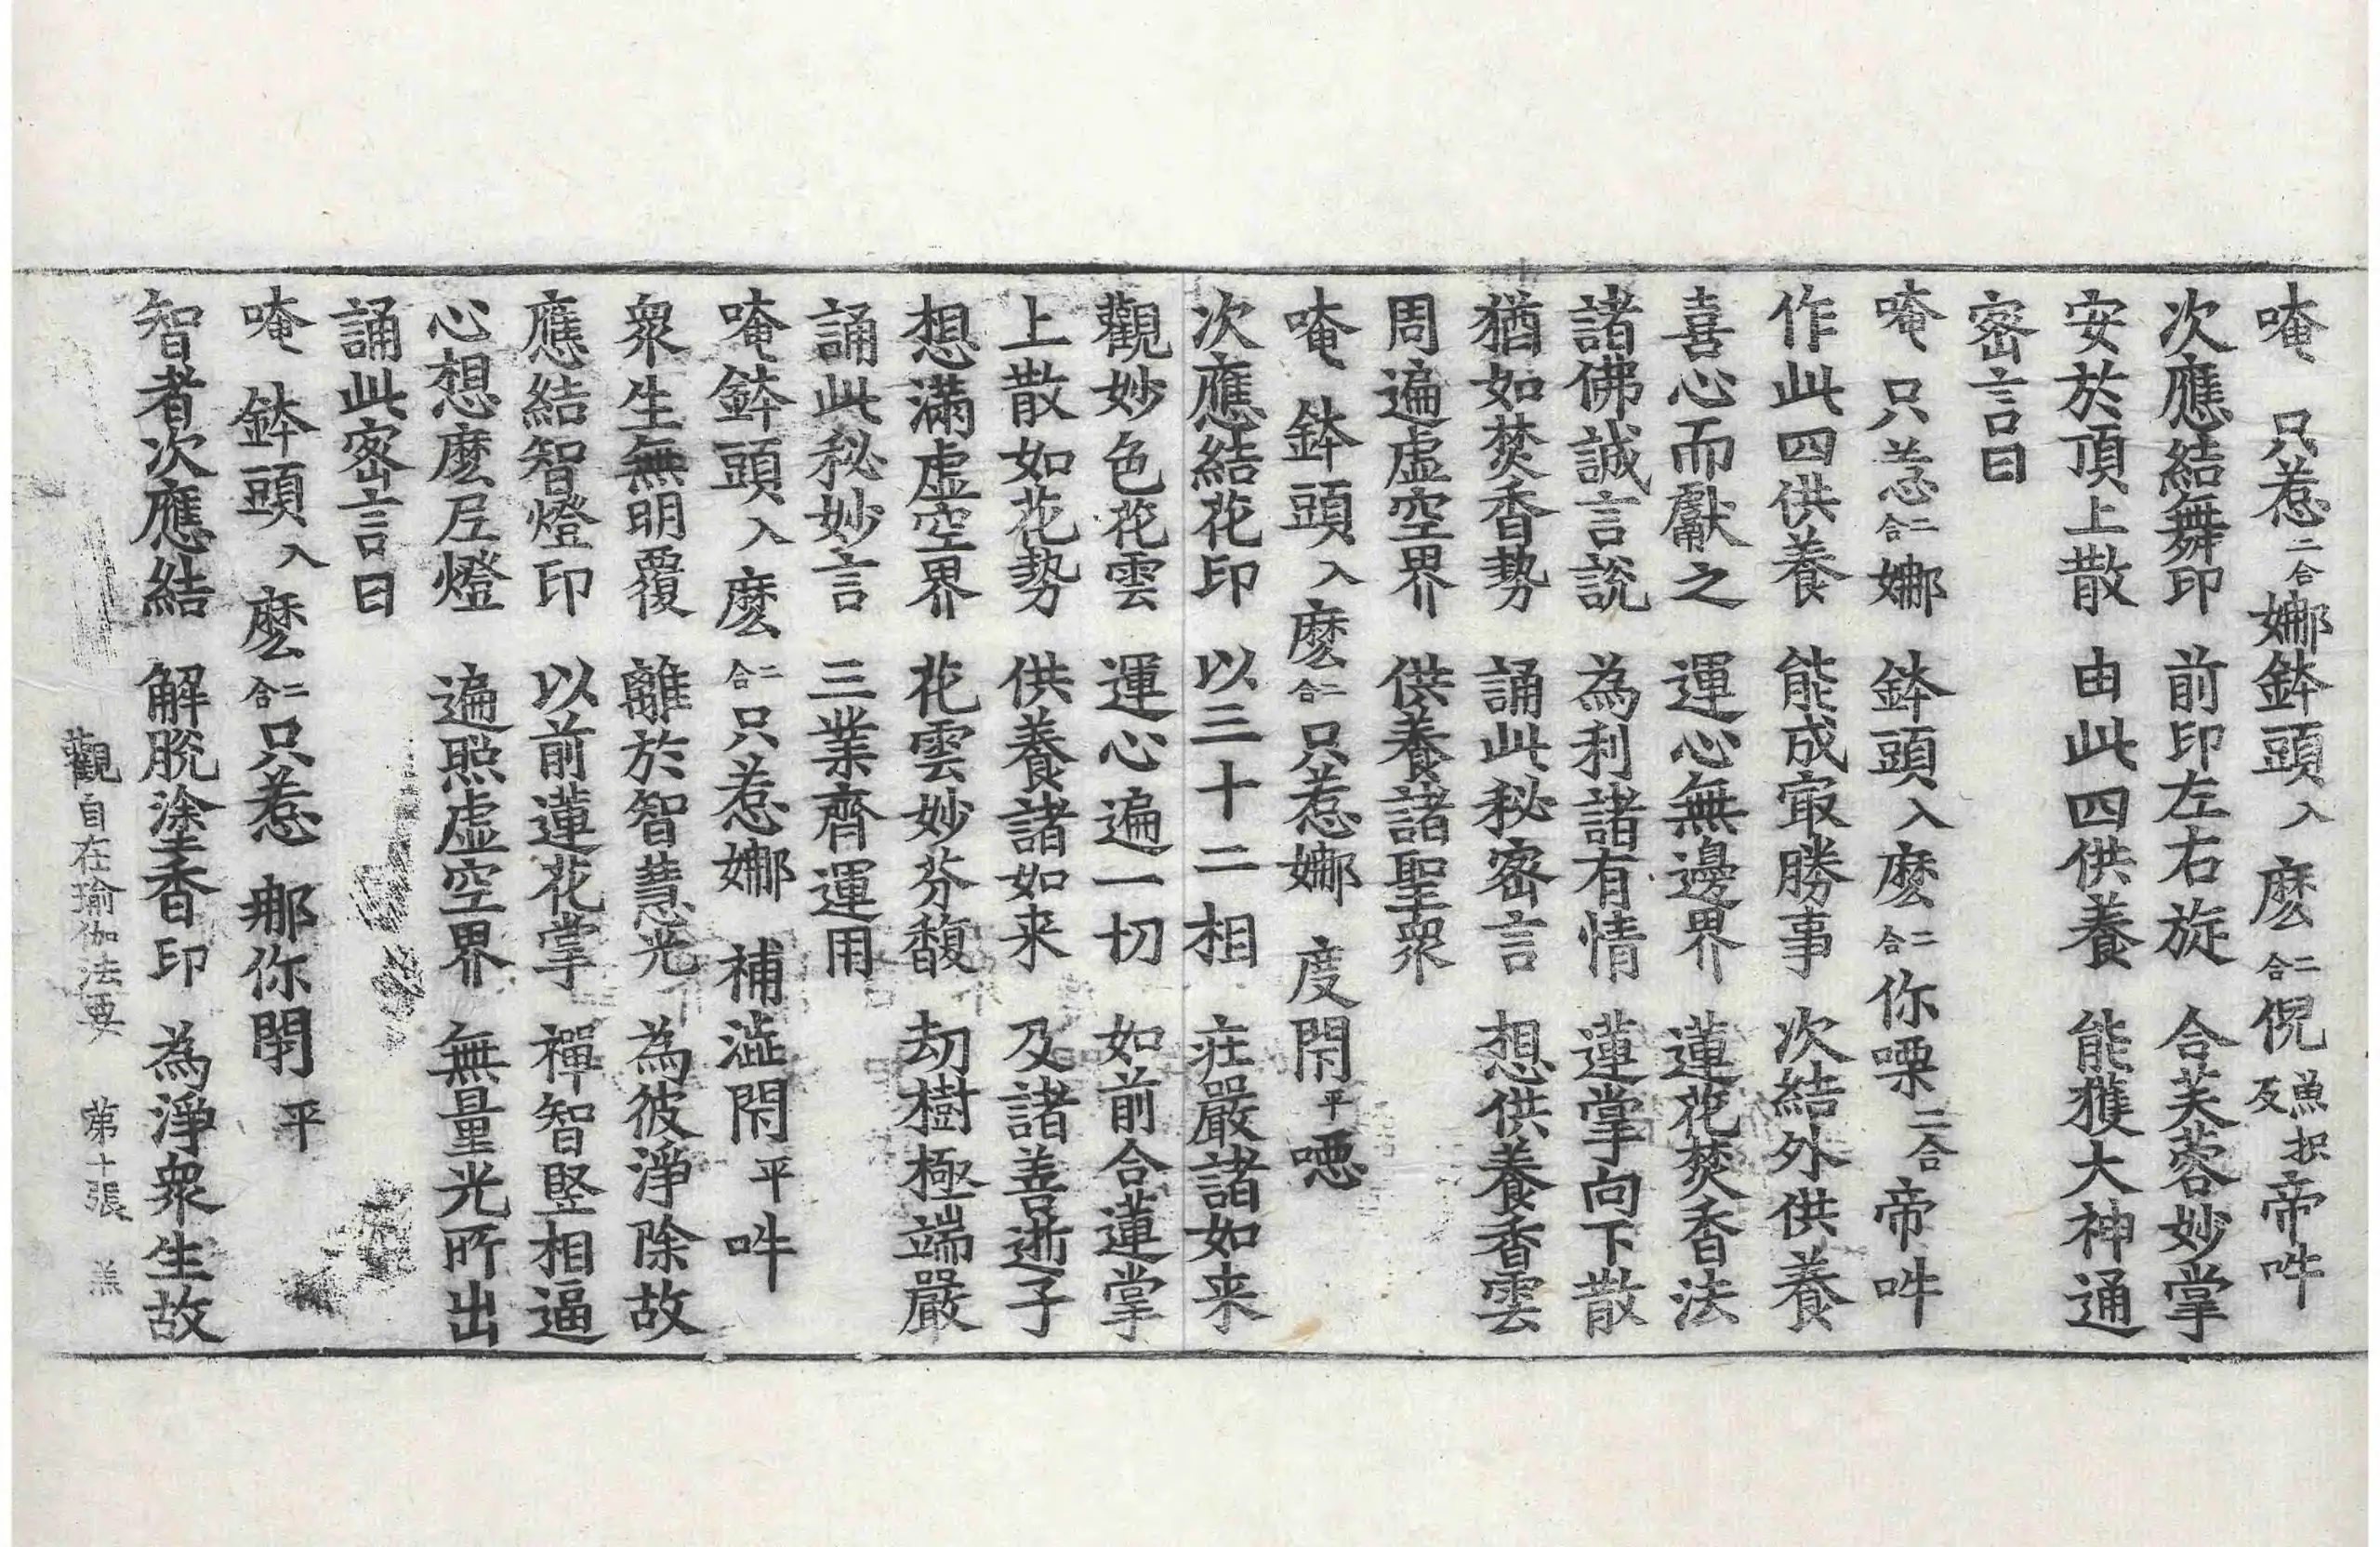 唵 只惹二合娜鉢頭入麽二合倪魚枳反帝吽
次應結舞印 前印左右旋 合芙蓉妙掌
安於頂上散 由此四供養 能獲大神通
密言曰
唵 只惹二合娜 鉢頭入麽二合你㗚二合帝吽
作此四供養 能成㝡勝事 次結外供養
喜心而獻之 運心無邊界 蓮花焚香法
諸佛誠言說 為利諸有情 蓮掌向下散
猶如焚香勢 誦此秘密言 想供養香雲
周遍虛空界 供養諸聖衆
唵 鉢頭入麽二合只惹娜 度閇平𠼝
次應結花印 以三十二相 莊嚴諸如来
觀妙色花雲 運心遍一切 如前合蓮掌
上散如花勢 供養諸如来 及諸善逝子
想滿虛空界 花雲妙芬馥 劫樹極端嚴
誦此秘妙言 三業齊運用
唵鉢頭入麽二合只惹娜 補澁閇平吽
衆生無明覆 離於智慧光 為彼淨除故
應結智燈印 以前蓮花掌 禪智竪相逼
心想麽尼燈 遍照虛空界 無量光所出
誦此密言曰
唵 鉢頭入麽二合只惹 娜你閇平
智者次應結 解脫塗香印 為淨衆生故
觀自在瑜伽法要 第十張 羔